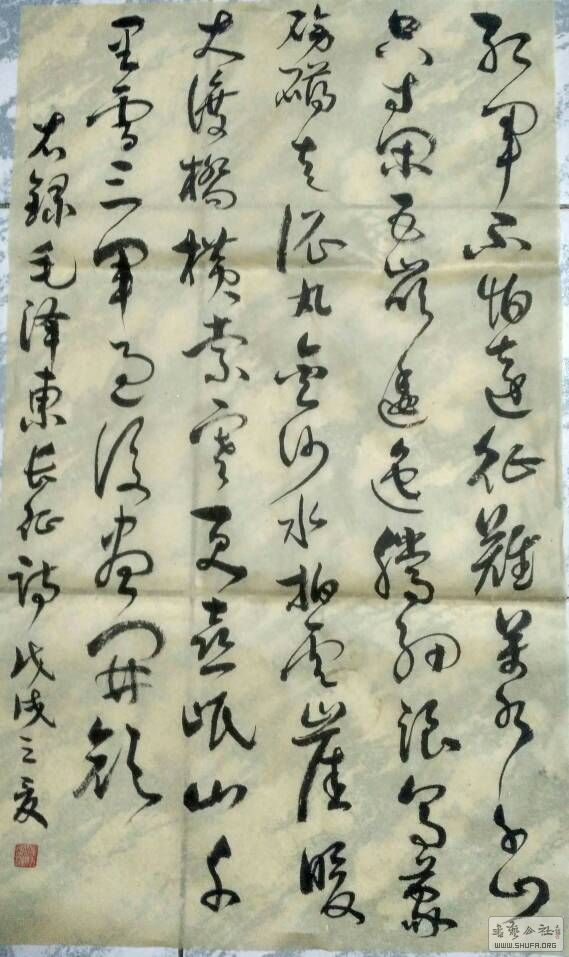 红軍不怕遠征難萬水千山
只等闲五嶺逶迤腾细浪乌蒙
磅礴走泥丸金沙水拍雲崖暖
大渡橋横索寒更喜岷山千
里雪三軍过後尽開颜
右録毛泽東长征诗 戊戌之夏
书艺公社
WWW.SHUFA.ORG